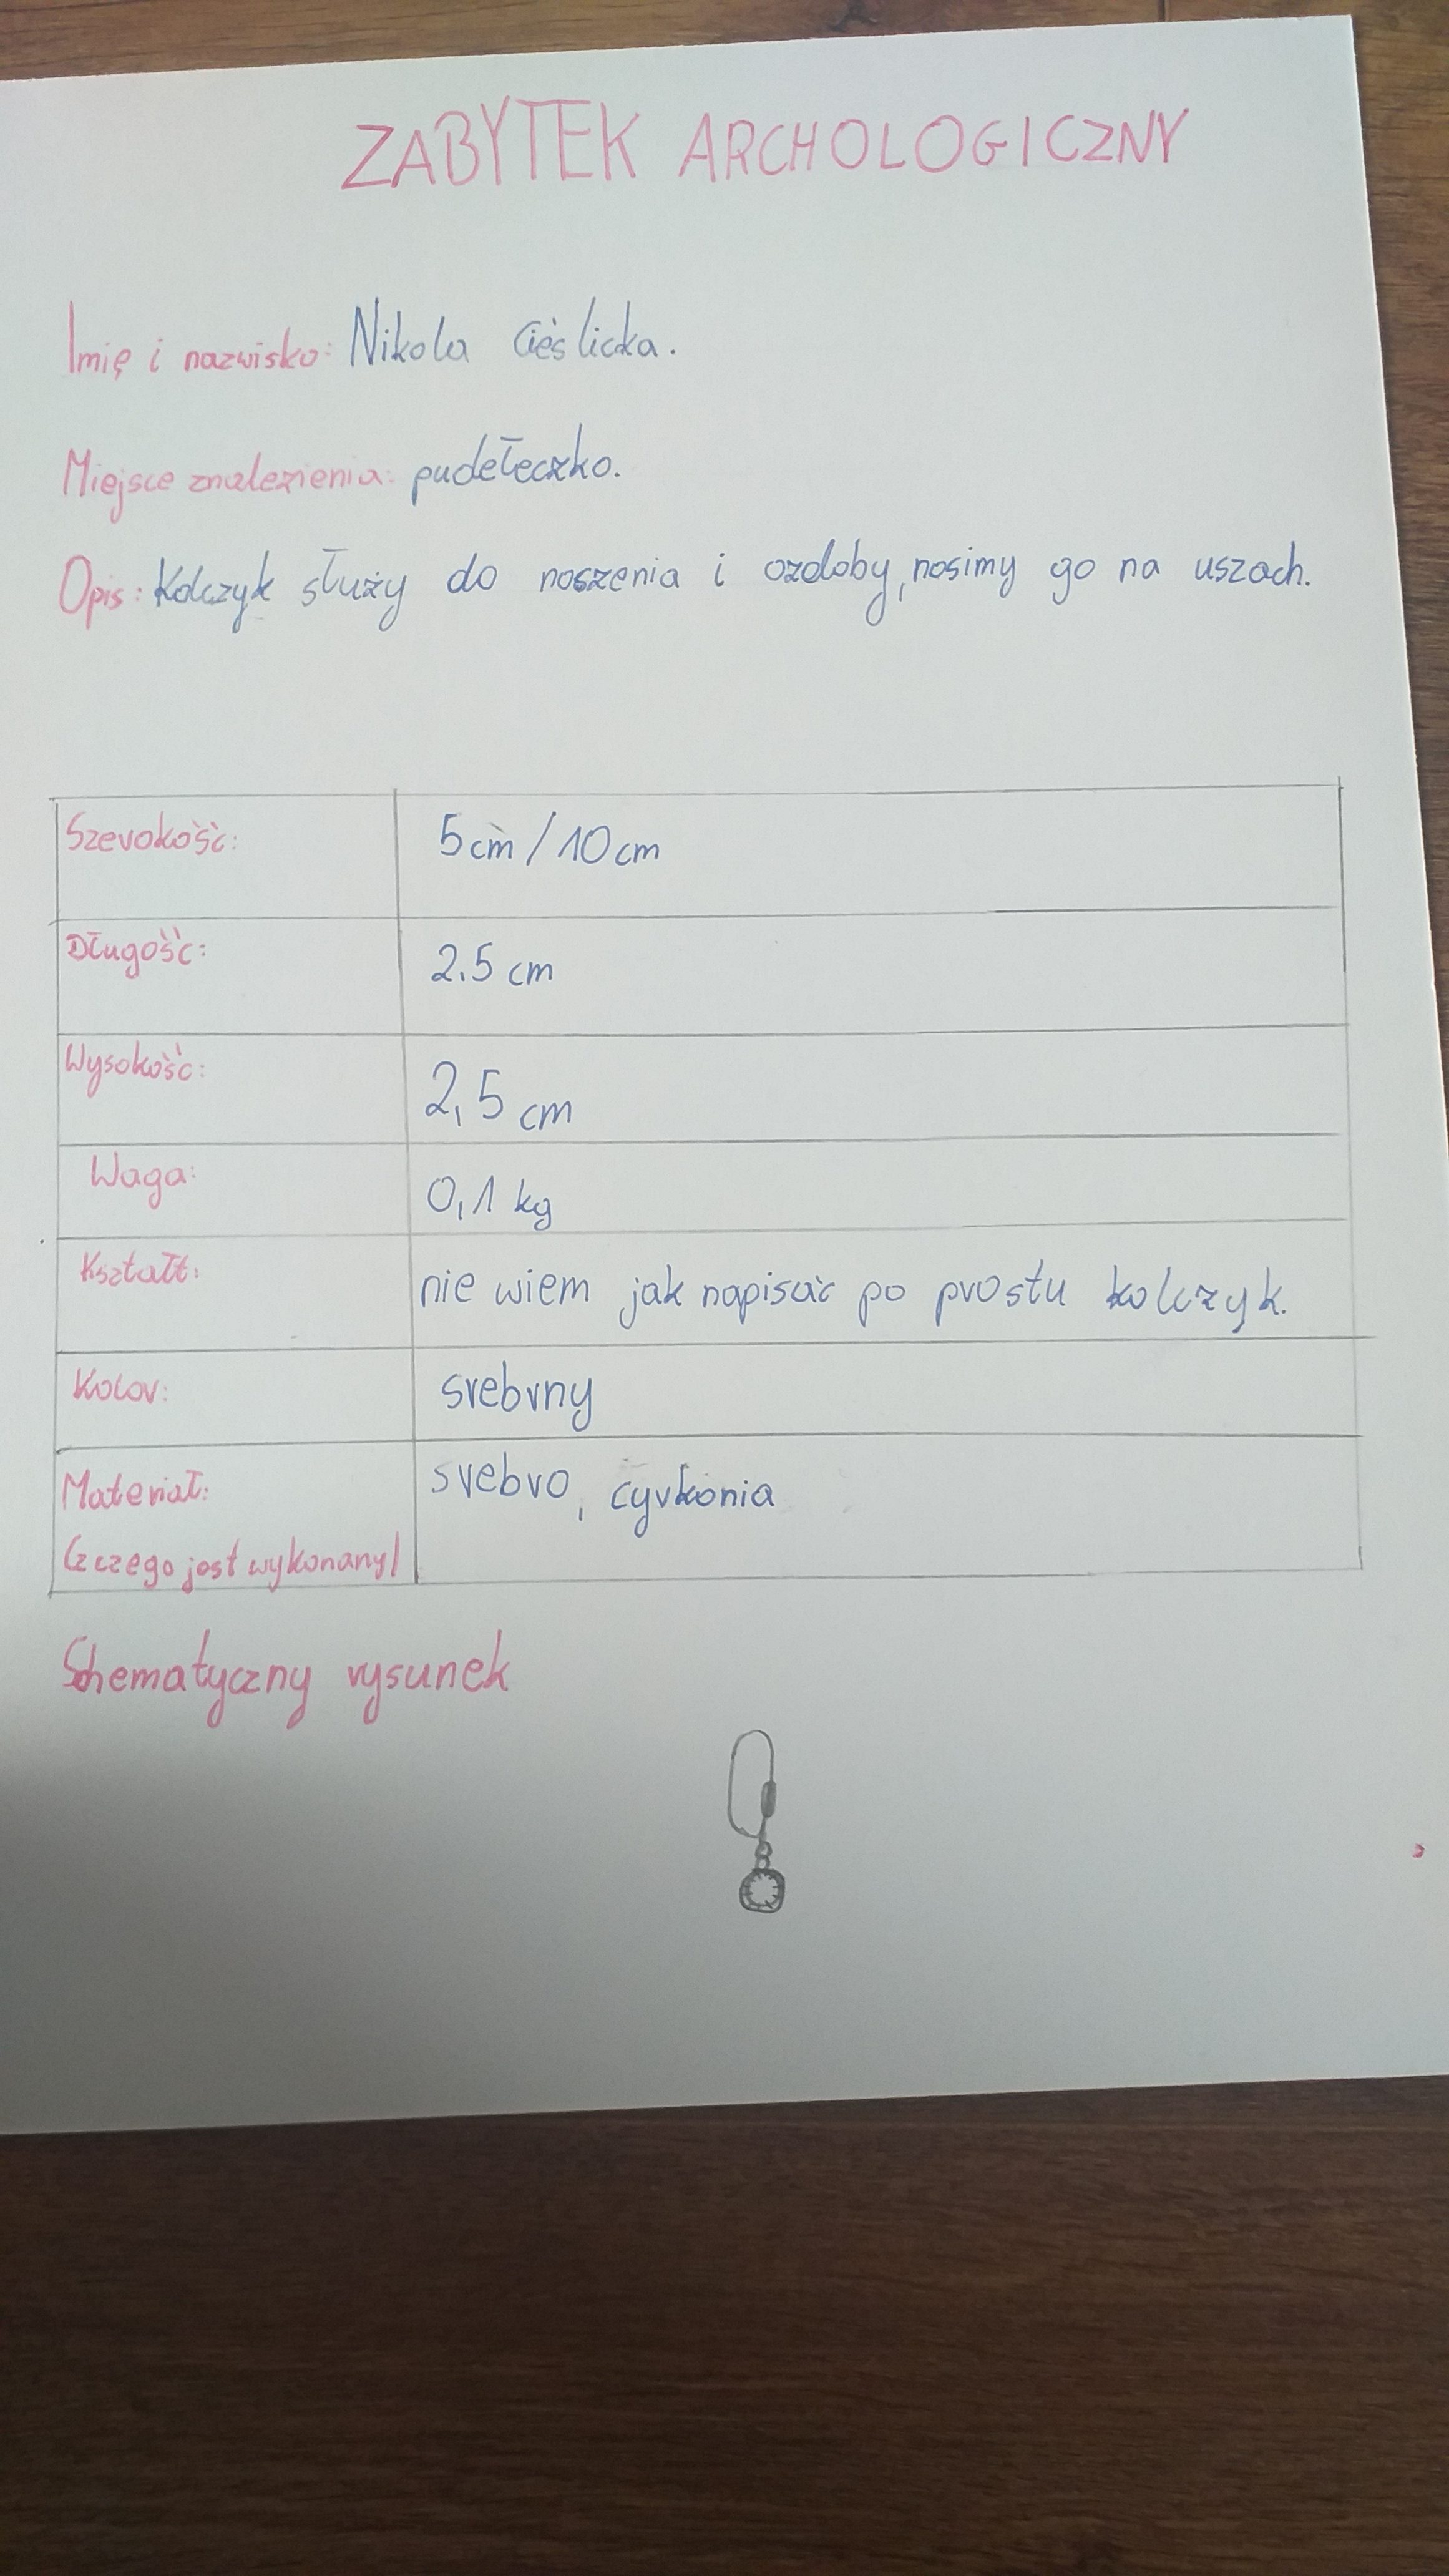 ZABYTEK ARCHOLOGICZNY
Imię i nazwisko: Nikola Cieślicka.
Miejsce znalezienia: pudełeczko.
Opis: Kolczyk służy do noszenia i ozdoby, nosimy go na uszach.
Szerokość: 5cm / 10cm
Długość: 2.5 cm
Wysokość: 2,5 cm
Waga: 0,1 kg
Kształt: nie wiem jak napisać po prostu kolczyk.
Kolor: srebrny
Materiał: srebro, cyrkonia
(z czego jest wykonany)
Schematyczny rysunek